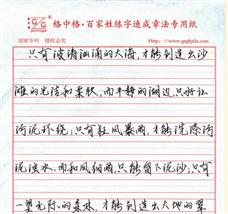 格中格·百家姓练字速成章法专用纸
国家专利 侵权必究
只有波涛汹涌的大海,才能创造出沙
滩的光洁和柔软,而平静的湖边,只好让
污泥环绕;只有狂风暴雨,才能洗涤污
泥浊水,而和风细雨,只能留下泥沙,只有
一望无际的森林,才能创造出大地的翠